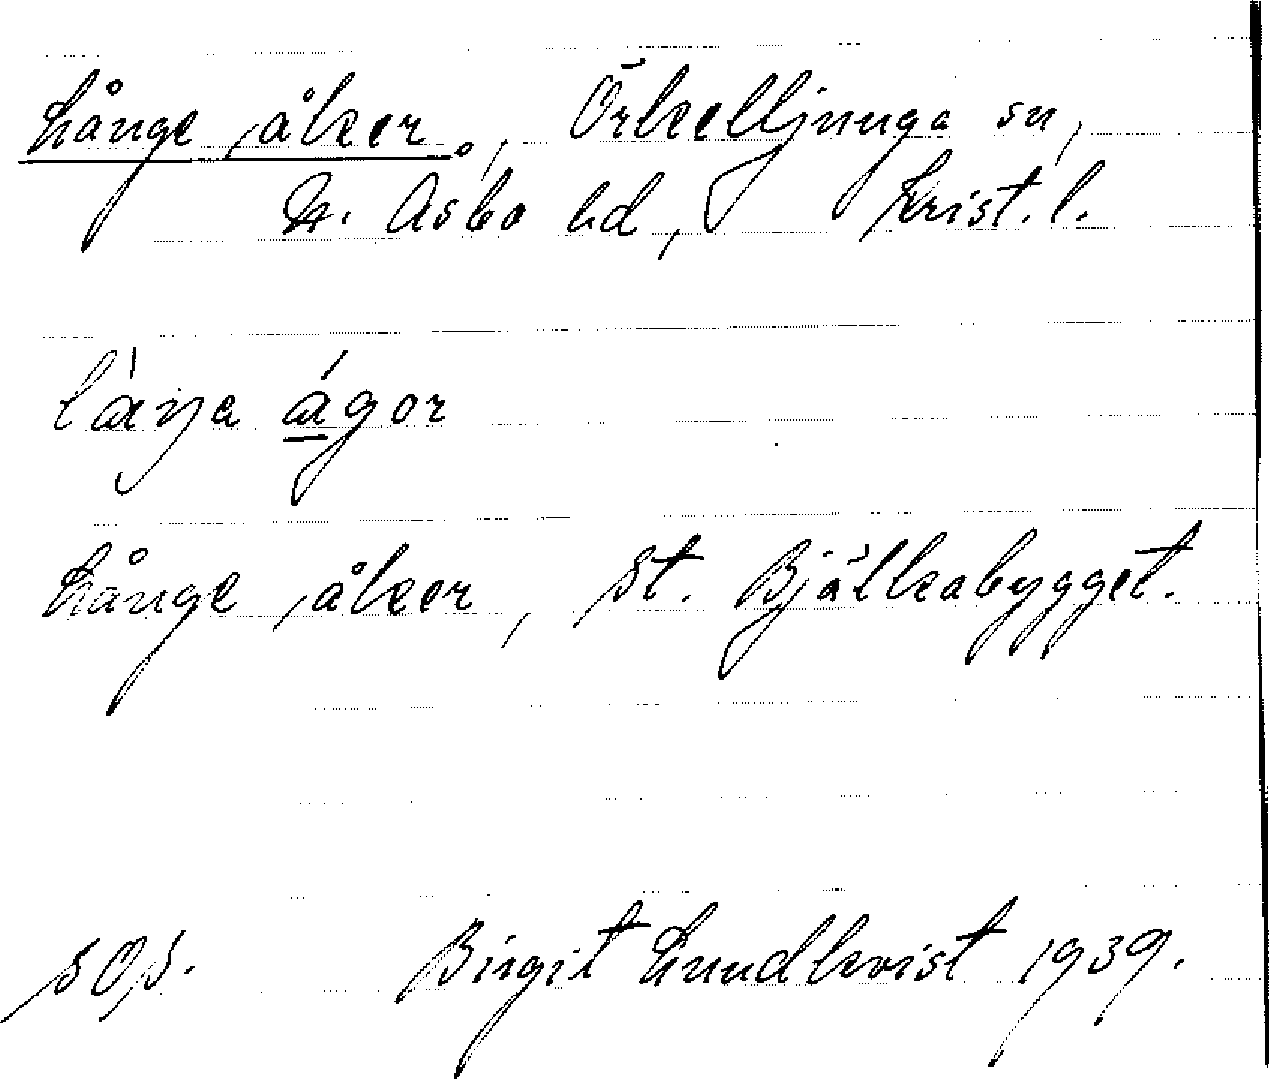 Långe åker, Örkelljunga sn,
N. Åsbo hd, Krist. l.
låŋa ágor
Långe åker, St. Bjälkabygget.
sos. Birgit Lundkvist 1939.